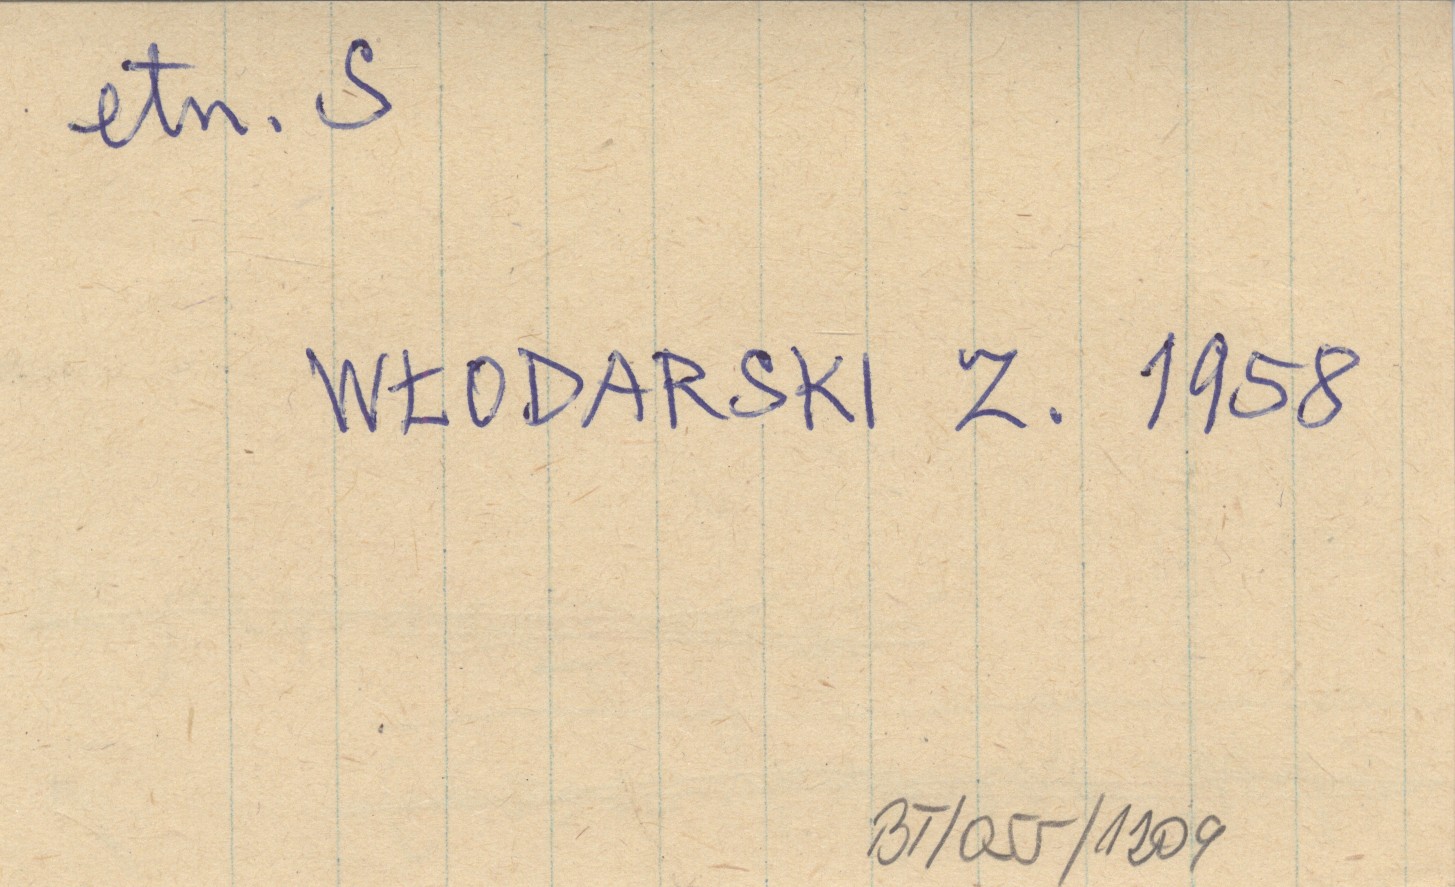 etn. S
WŁODARSKI Z. 1958
BT/055/1209